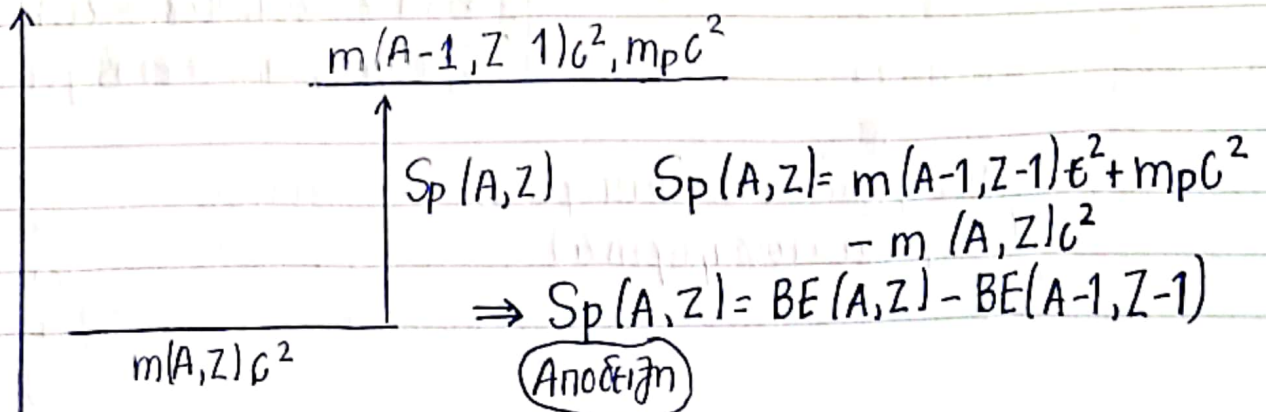 m(A-1,Z 1)c²,mpc²
Sp(A,Z) Sp(A,Z)= m(A-1,Z-1)c²+mpc²
- m (A,Z)c²
⇒ Sp(A,Z)= BE(A,Z)-BE(A-1,Z-1)
m(A,Z)c²
Αποδειξη